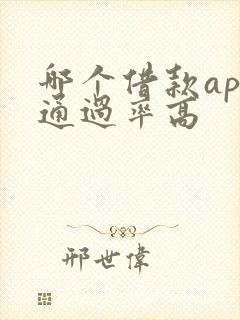 哪个借款ap
通過率高
邢世偉